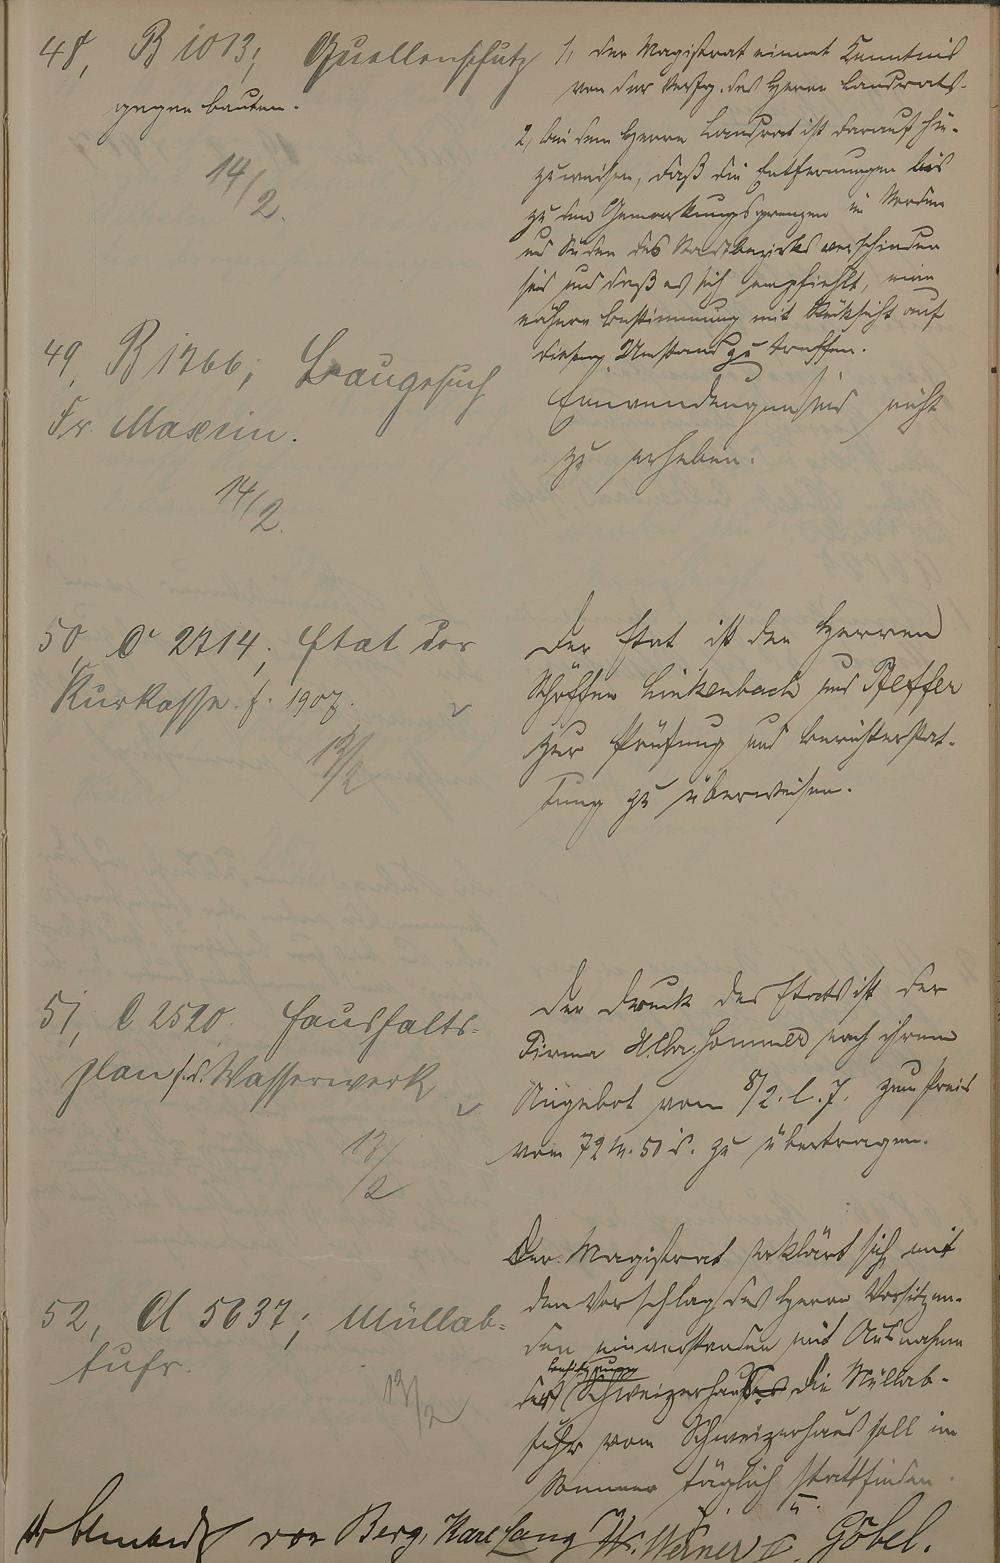 48, B 1013; Quellenschutz
gegen bauten.
14/2.
1, Der Magistrat nimmt Kenntnis
von der Verfg. des Herrn Landrats.
2, bei dem Herrn Landrat ist darauf hin-
zuweisen, daß die Entfernungen bis
zu den Gemarkungsgrenzen im Norden
und Süden des Stadtbezirks verschieden
sind und daß es sich empfiehlt, eine
nähere Bestimmung mit Rücksicht auf
diesen Umstand zu treffen.
49, B 1766; Baugesuch
Fr. Maxein.
14/2.
Einwendungen sind nicht
zu erheben.
50, C 2714; Etat der
Kurkasse f. 1907.
13/2
Der Etat ist den Herren
Schöffen Linkenbach und Pfeffer
zur Prüfung und Berichterstat-
tung zu überweisen.
51, C 2520. Haushalts-
plan f. d. Wasserwerk
13/2
Der Druck des Etats ist der
Firma Sommer nach ihrem
Angebot vom 8/2. l. J. zum Preis
von 72 M. 50 zu übertragen.
52, A 5637; Müllab-
fuhr.
13/2
Der Magistrat erklärt sich mit
dem Vorschlag des Herrn Vorsitzen-
den einverstanden mit Ausnahme
des Schweizerhauses. Die Müllab-
fuhr vom Schweizerhaus soll im
Sommer täglich stattfinden.
v. u.
von Berg. Karl Lang W. Werner Göbel.